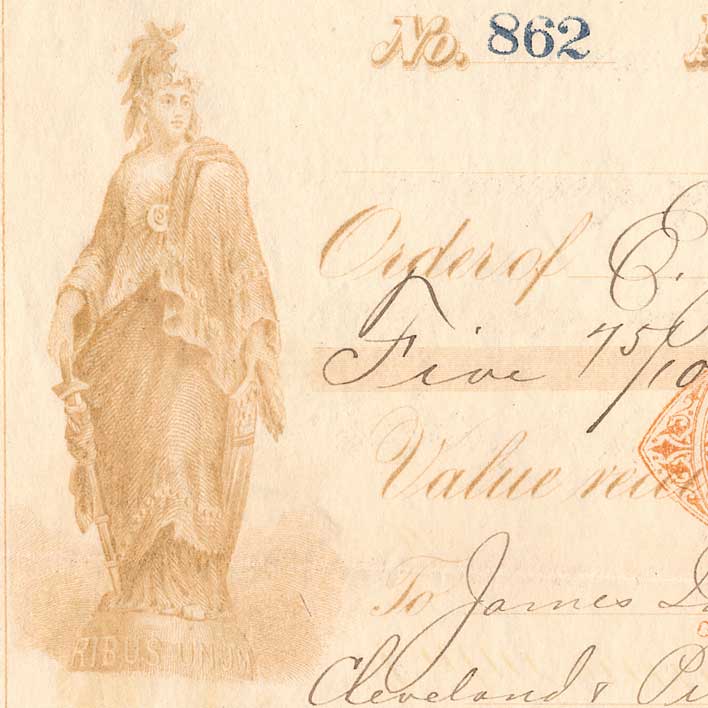 No. 862
Order of E.
Five 75/10
Value rec
To James
RIBUS UNUM
Cleveland &